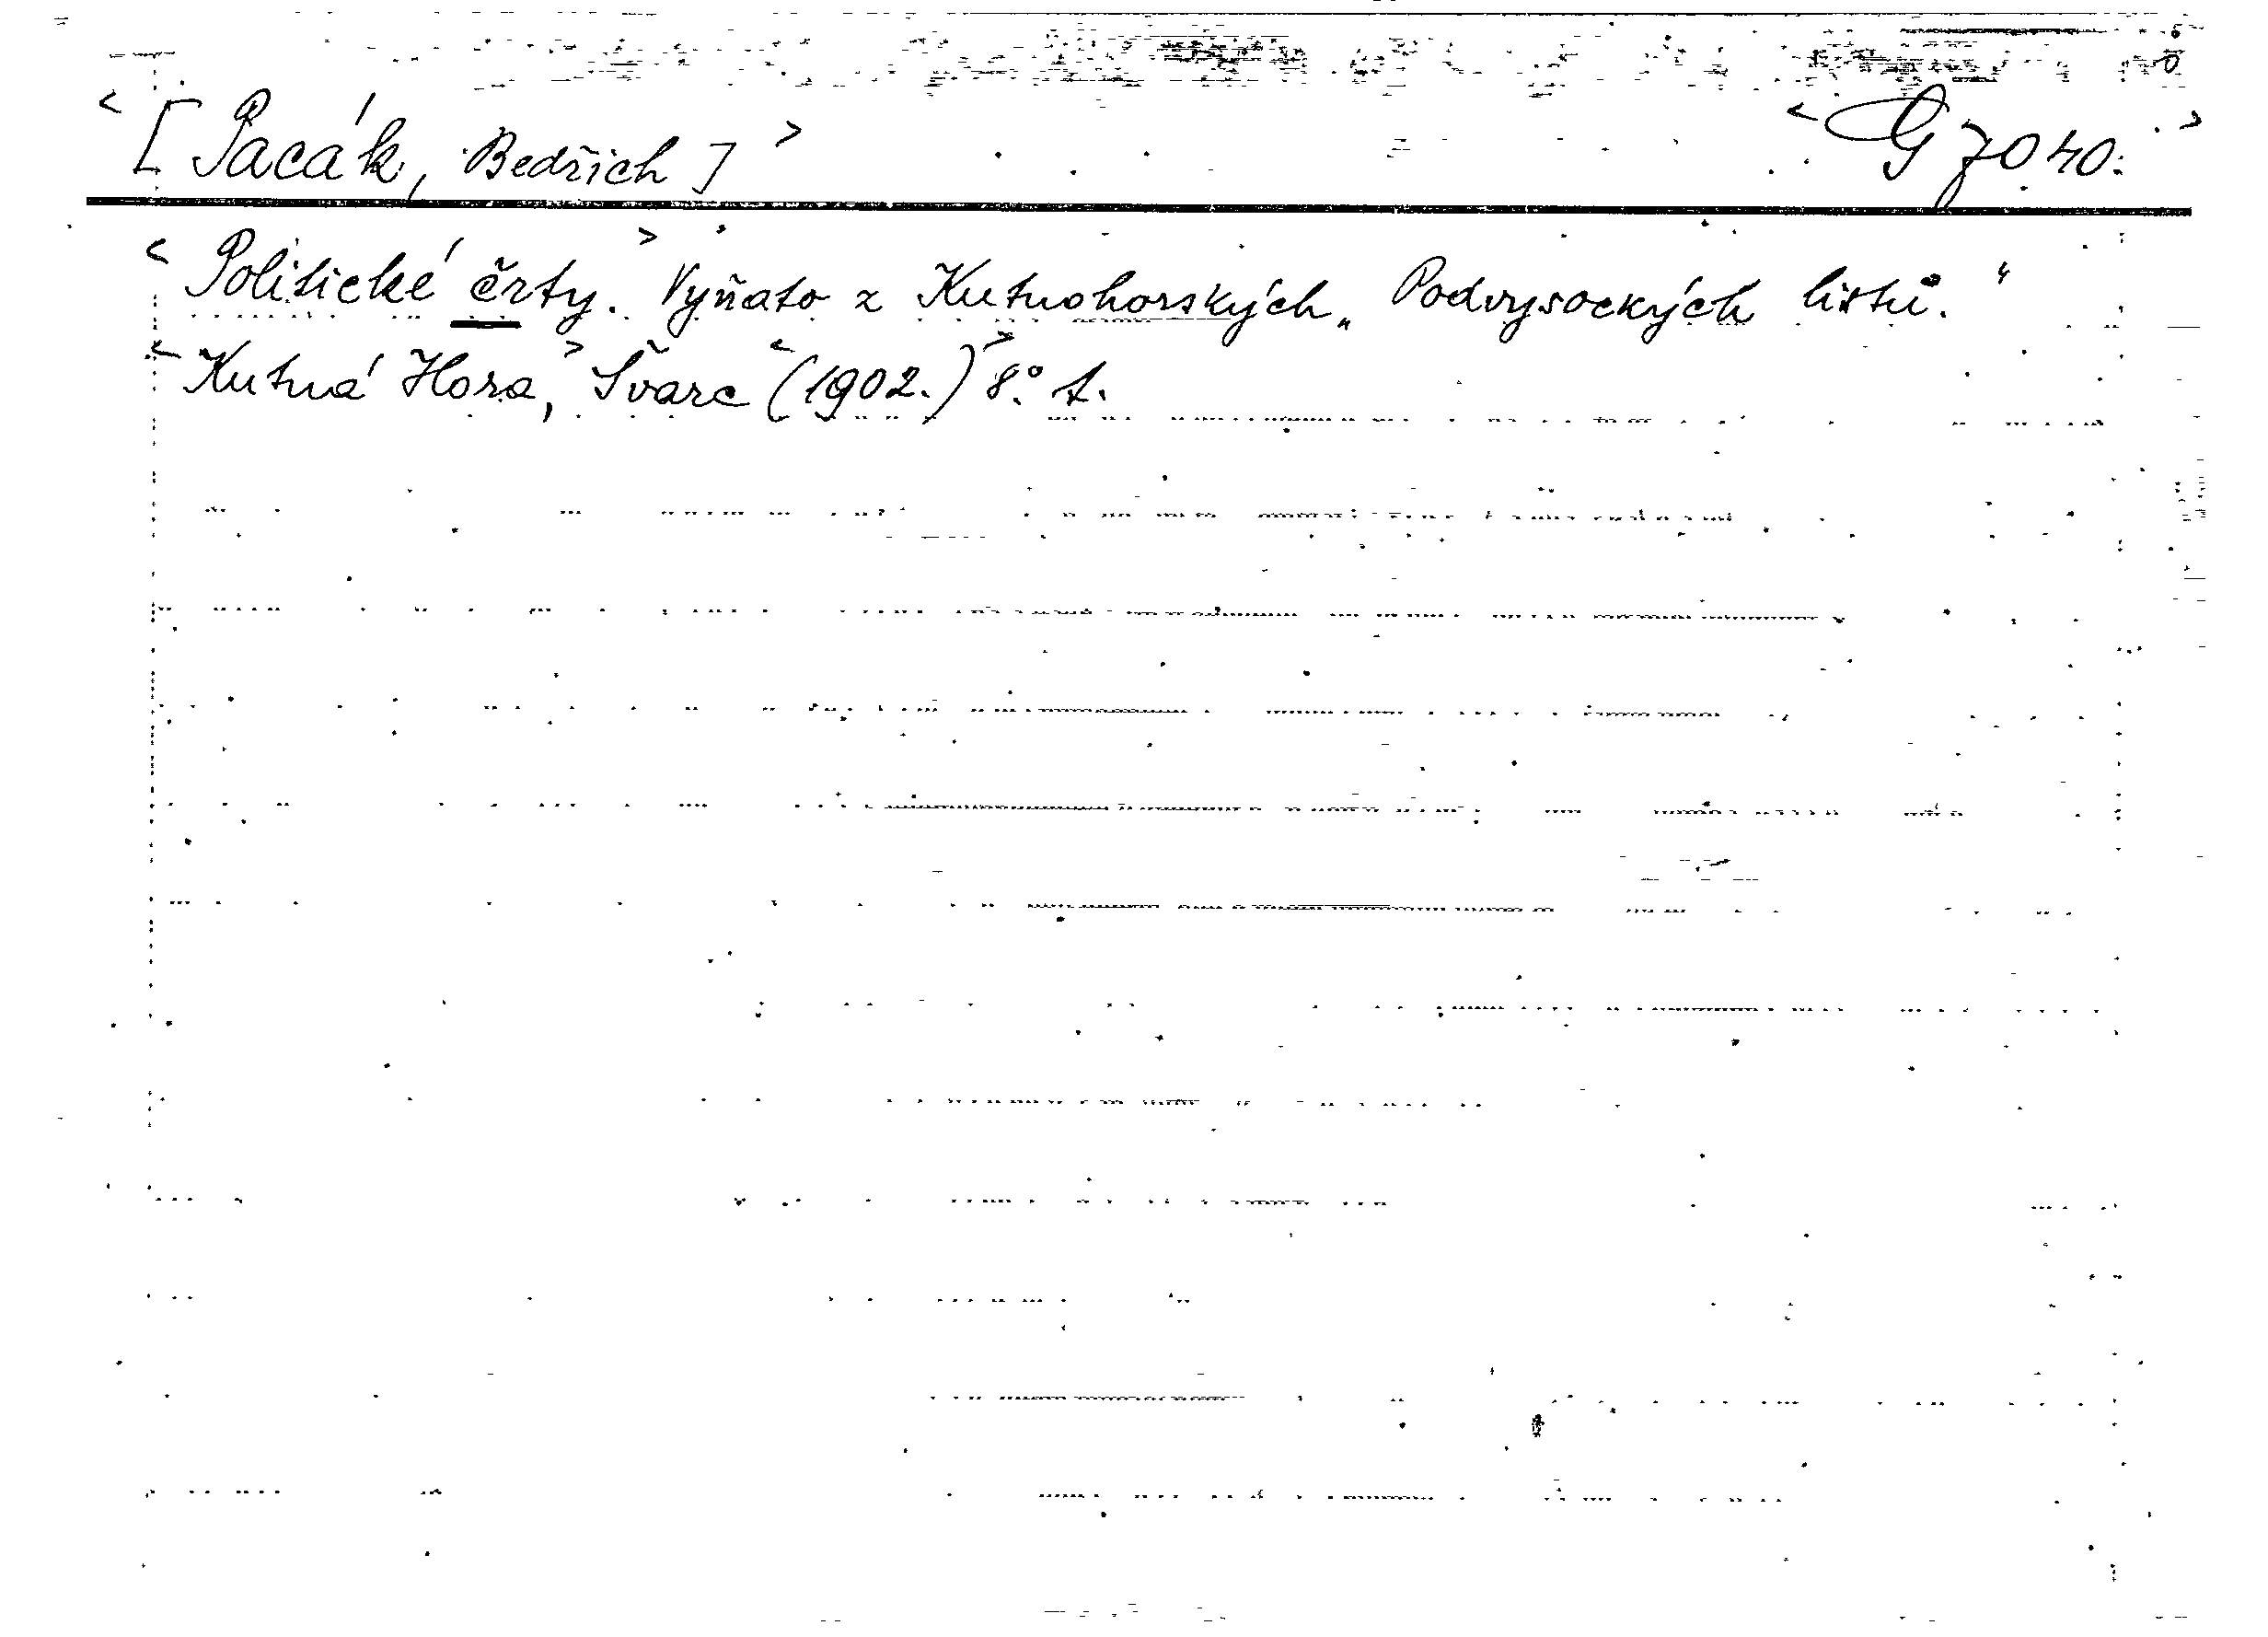 < [Pacák, Bedřich] > < G 7040. >
< Politické črty. > Vyňato z Kutnohorských „Podvysockých listů.“
< Kutná Hora, > Švarc < (1902.) > 8.° f.